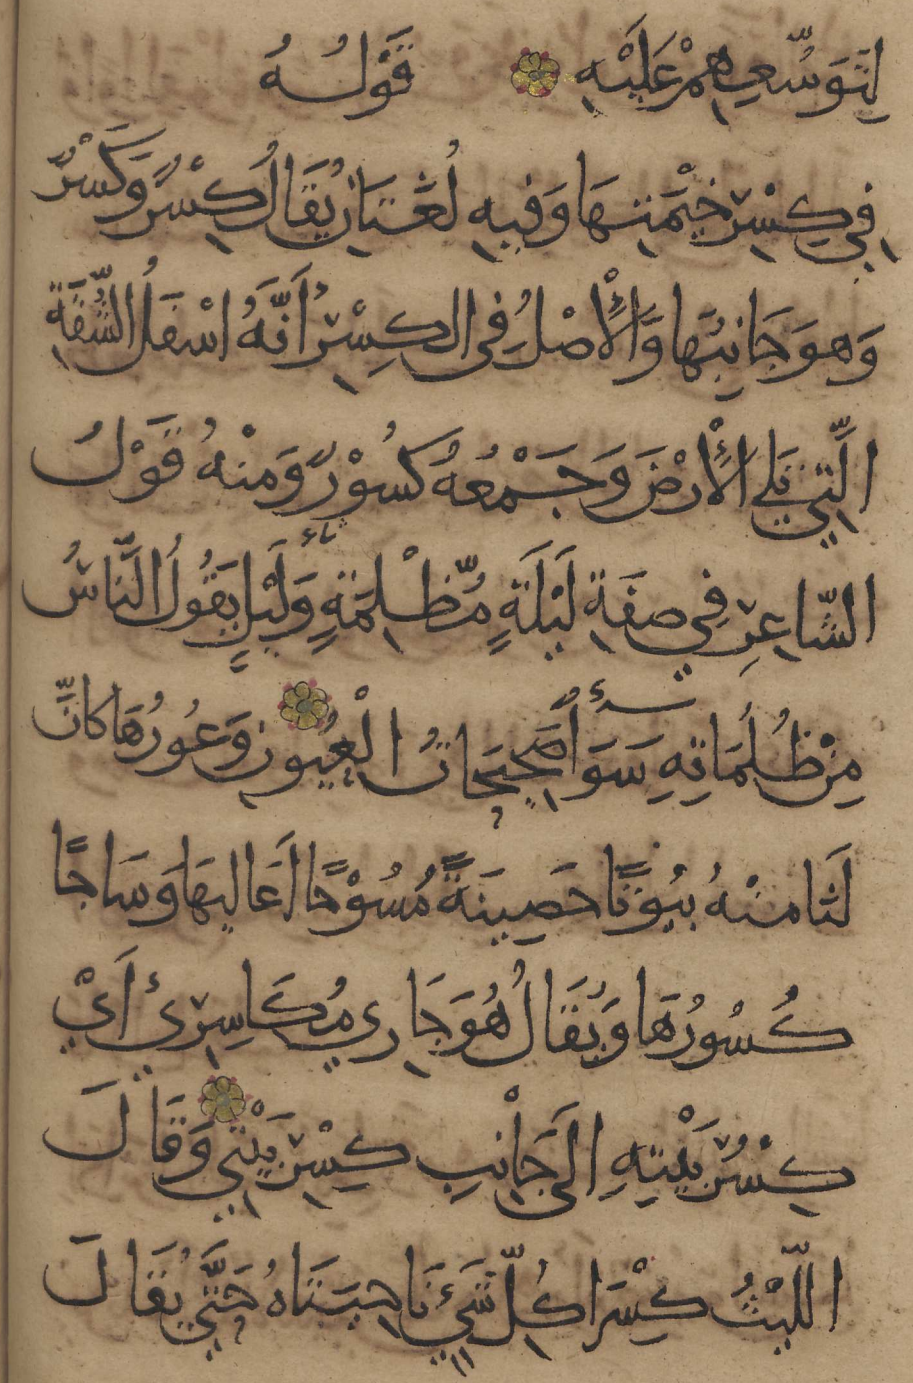 لِتَوَسُّعِهِمْ عَلَيْهِ قَوْلُهُ
فِي كِسْرِ خَيْمَتِهَا وَفِيهِ لُغَتَانِ يُقَالُ كِسْرٌ وَكَسْرٌ
وَهوَ جَانِبُهَا وَالْأَصْلُ فِي الكِسْرِ أَنَّهُ اسْفَلُ الشُّقَةِ
الَّتِي تَلِي الْأَرْضَ وَجَمْعُهُ كُسُوْرٌ وَمِنْهُ قَوْلُ
الشَّاعِرِ فِي صِفَةِ لَيْلَةٍ مُّظْلِمَةٍ وَلَيْلٍ يَقُولُ النَّاسُ
مِنْ ظُلُمَاتِهِ سَوَاءٌ صَحِيحَاتُ الْعُيُونِ وَعُورُهَا كَانَّ
لَنَا مِنْهُ بُيُوتًا حَصِينَةً مُسُوْحًا أَعَالِيهَا وَسَاجًا
كُسُورُهَا وَيُقَالُ هُوَ جَارِي مُكَاسِرِيْ أَيْ
كِسْرُ بَيْتِهِ الَى جَانِبِ كِسْرِ بَيْتِي وَقَالَ
اللَّيْثُ كِسْرَا كُلِّ شَيْءٍ نَاحِيَتَاهُ حَتَّى يُقَالَ